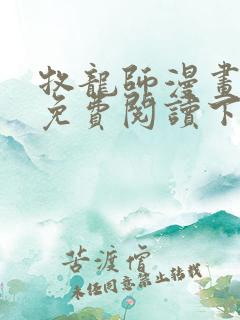 牧龍師漫畫
免費閱讀下
苦渡僧
未經同意禁止轉載